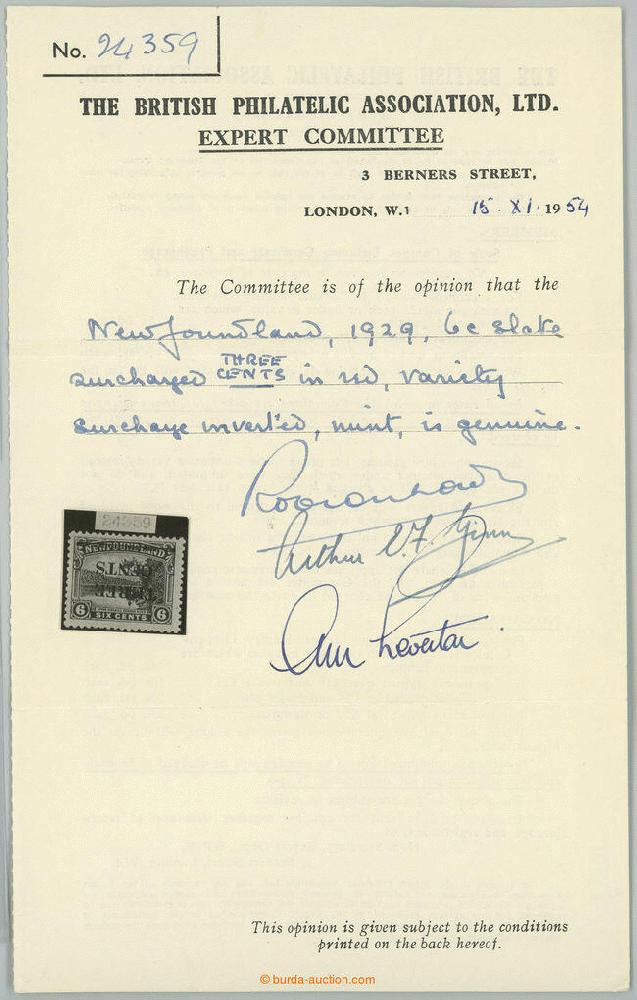 No. 24359
THE BRITISH PHILATELIC ASSOCIATION, LTD.
EXPERT COMMITTEE
3 BERNERS STREET,
LONDON, W.1 15. XI. 1954
The Committee is of the opinion that the
Newfoundland, 1929, 6c slate
surcharged THREE CENTS in red, variety
surcharge inverted, mint, is genuine.
Arthur
24359
NEWFOUNDLAND
CENTS
THREE
6 SIX CENTS 6
This opinion is given subject to the conditions
printed on the back hereof.
© burda-auction.com